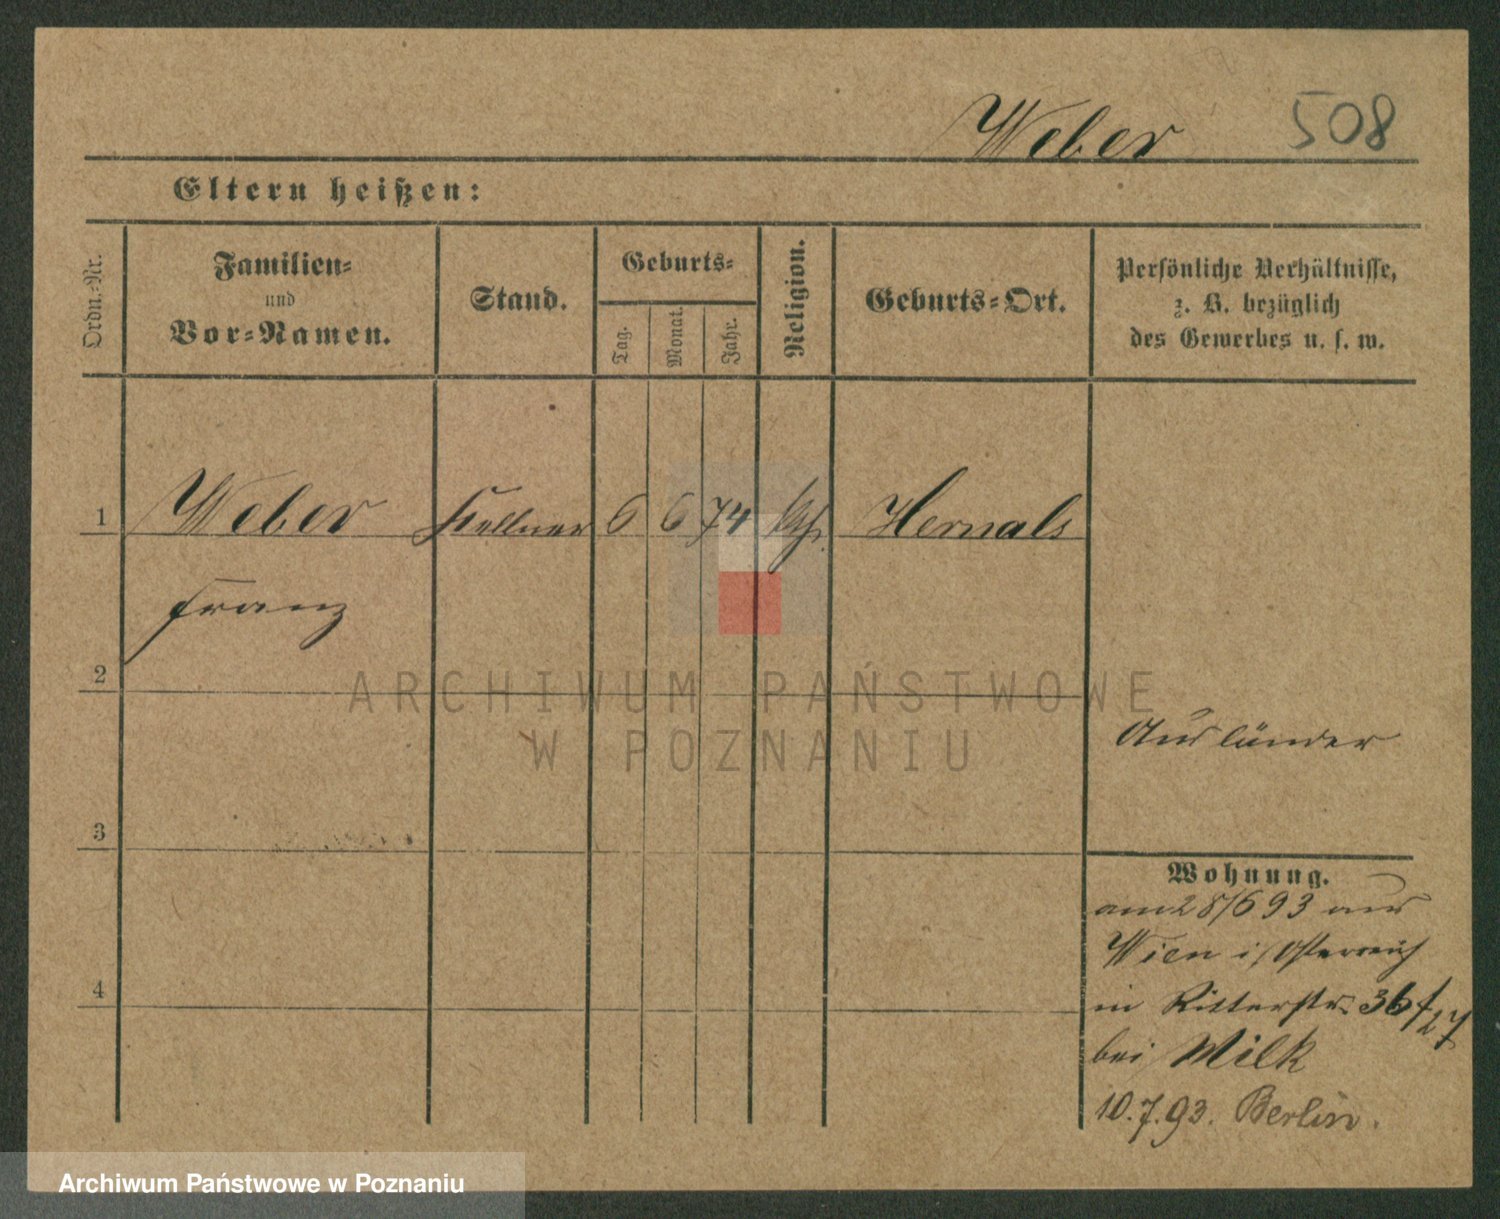 Weber 508
Eltern heißen:
Ordn.-Nr.
Familien-
und
Vor-Namen.
Stand.
Geburts-
Tag.
Monat.
Jahr.
Religion.
Geburts-Ort.
Persönliche Verhältnisse,
z. B. bezüglich
des Gewerbes u. s. w.
1 Weber Kellner 6 6 74 kth. Hernals
Franz
2
ARCHIWUM PAŃSTWOWE
W POZNANIU
Ausländer
3
Wohnung.
am 28/6 93 aus
Wien i/Österreich
4
in Ritterstr. 36/27
bei Wilk
10.7.93. Berlin.
Archiwum Państwowe w Poznaniu